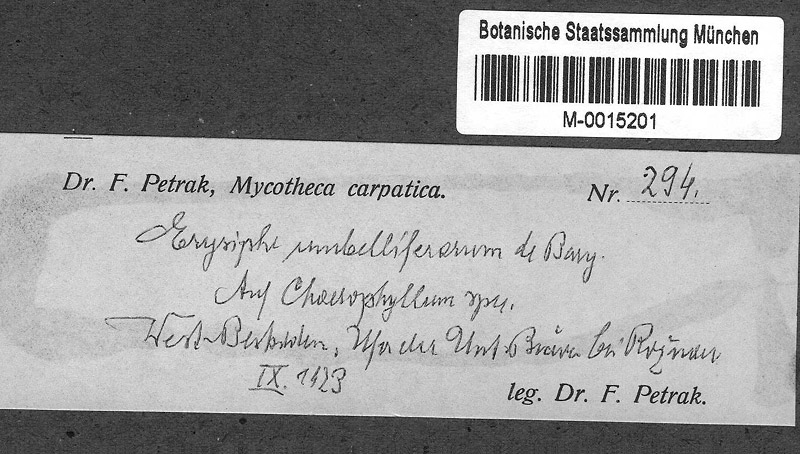 Botanische Staatssammlung München
M-0015201
Dr. F. Petrak, Mycotheca carpatica.
Nr. 294.
Erysiphe umbelliferarum de Bary.
Auf Chaerophyllum spec.
West-Beskiden, Ufer der Unt. Bečva bei Rožnau
IX. 1923
leg. Dr. F. Petrak.